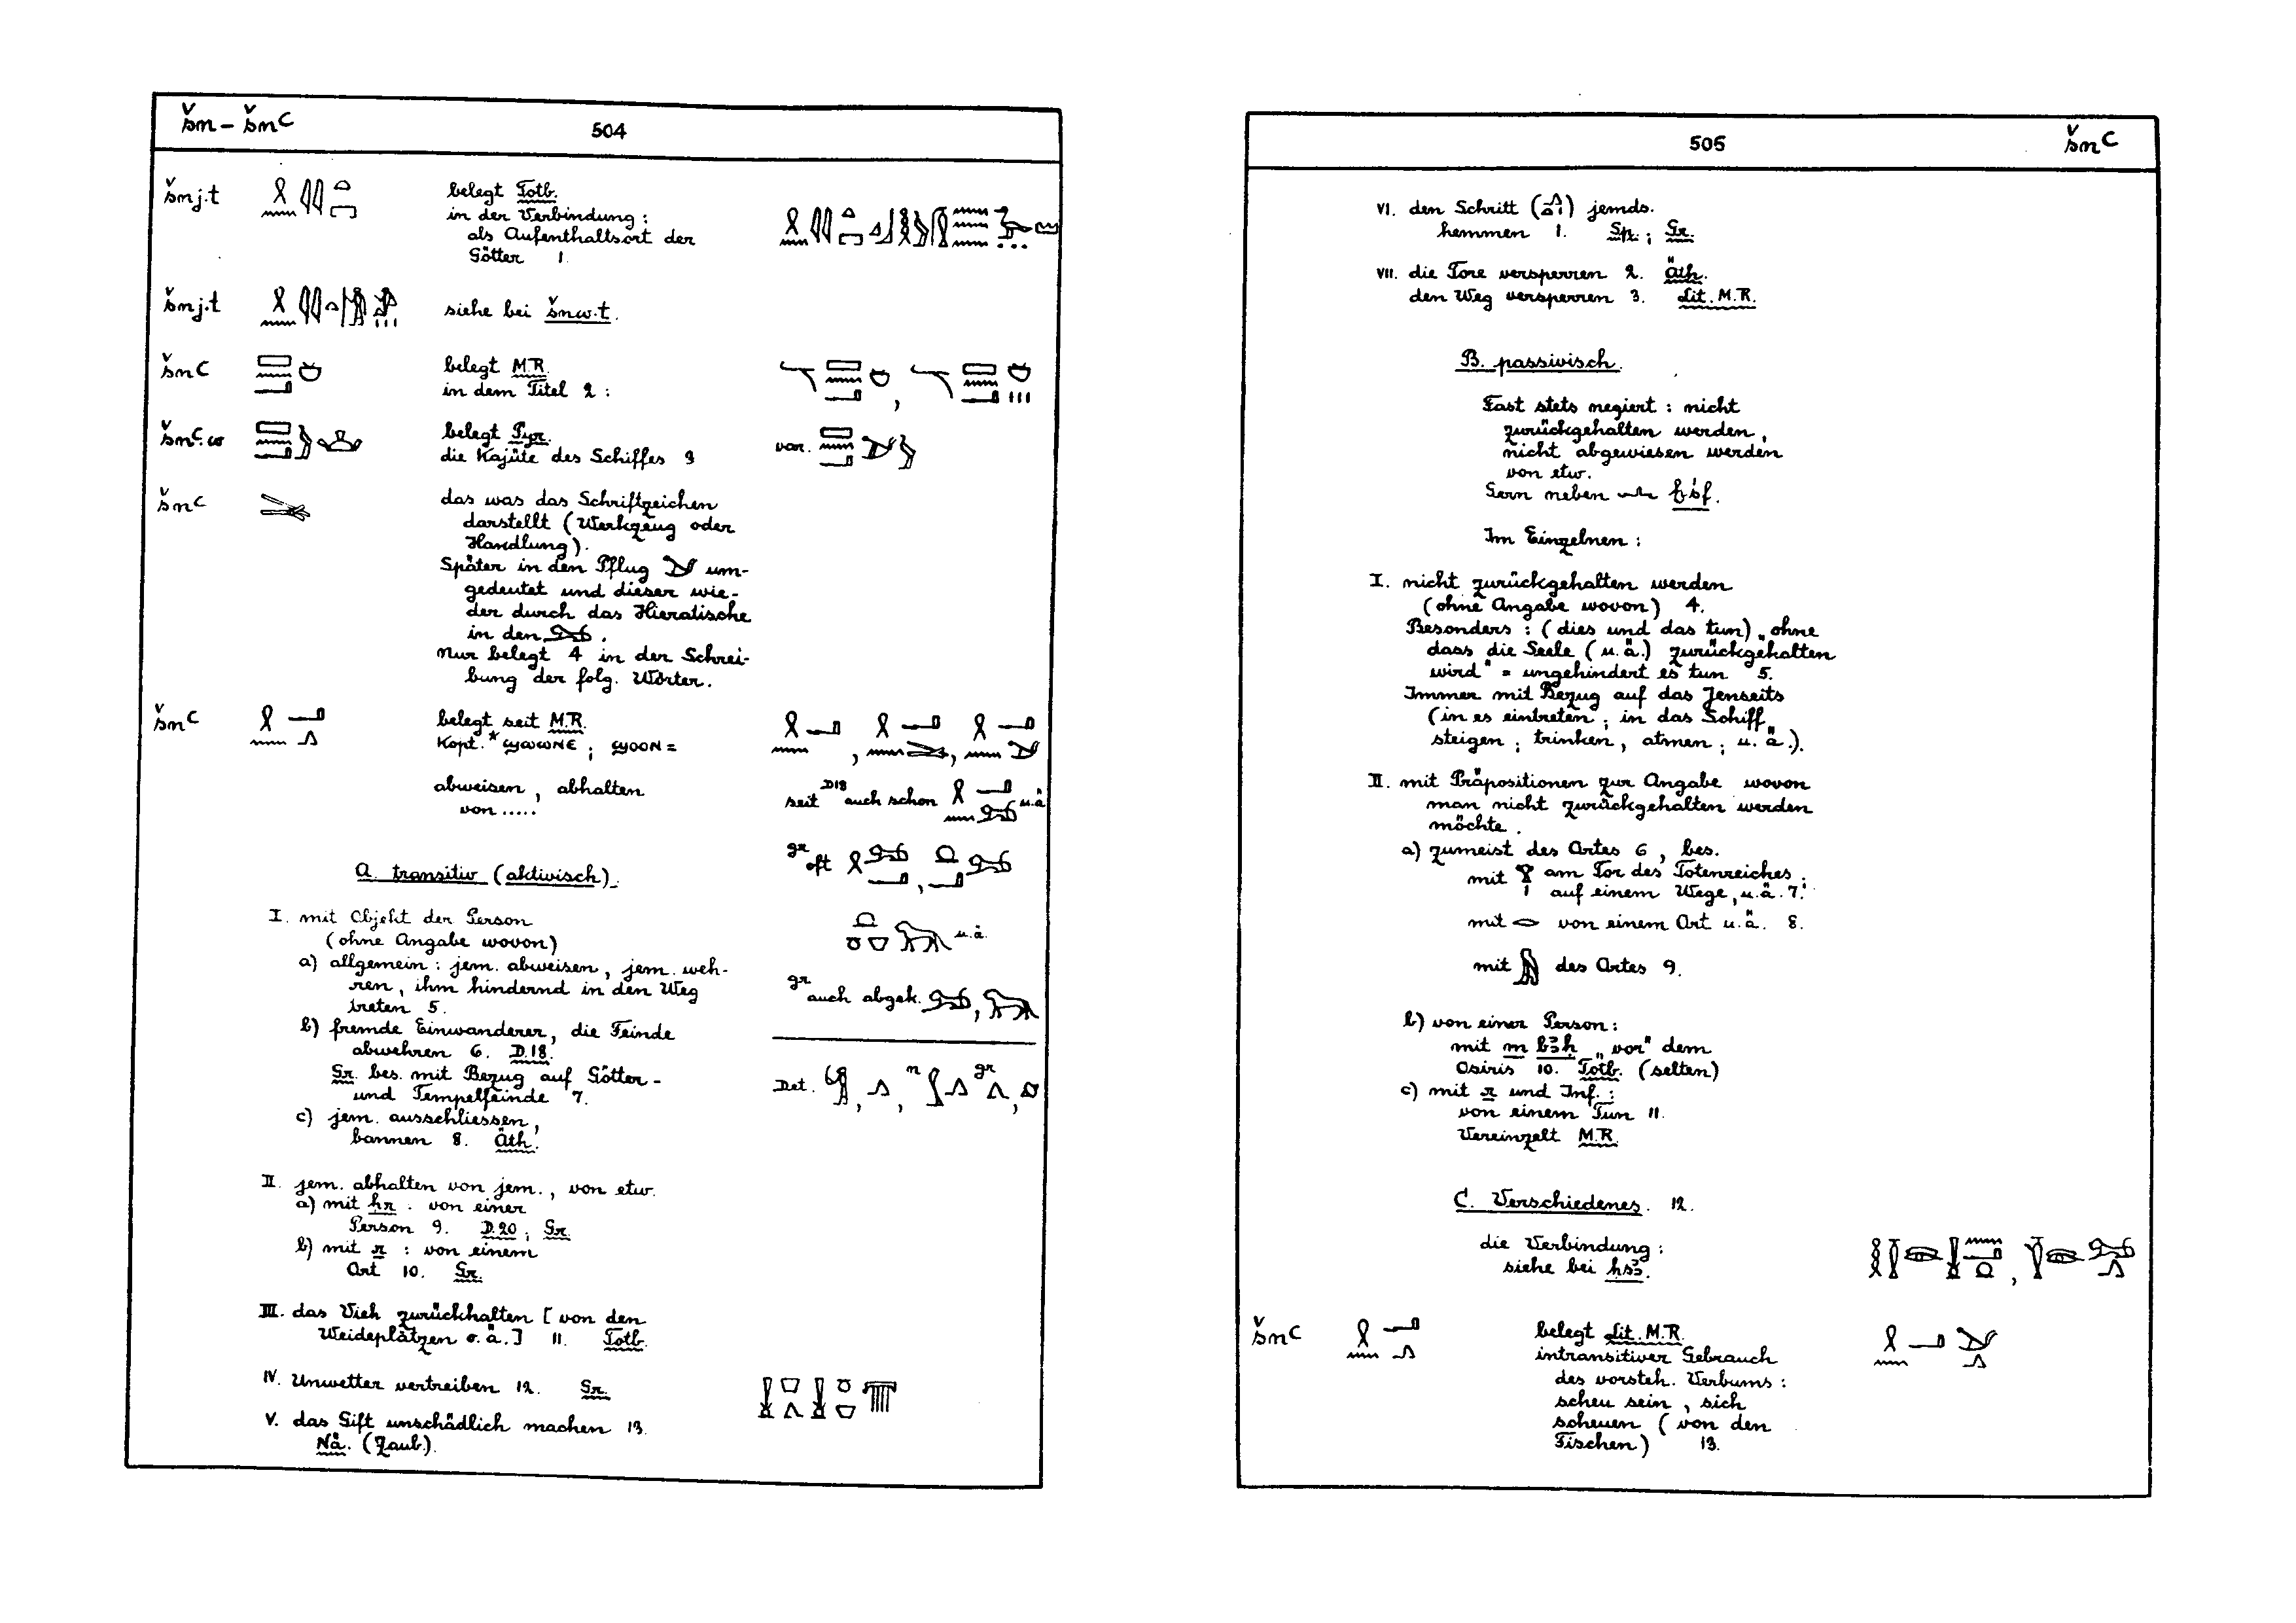 šn – šnꜥ
504
šnj.t
belegt Totb.
in der Verbindung:
als Aufenthaltsort der
Götter 1.
šnj.t
siehe bei šnw.t.
šnꜥ
belegt M.R.
in dem Titel 2:
šnꜥ.w
belegt Pyr.
die Kajüte des Schiffes 3
var.
šnꜥ
das was das Schriftzeichen
darstellt (Werkzeug oder
Handlung).
Später in den Pflug um-
gedeutet und dieser wie-
der durch das Hieratische
in den .
Nur belegt 4 in der Schrei-
bung der folg. Wörter.
šnꜥ
belegt seit M.R.
Kopt. *ϣⲱⲱⲛⲉ; ϣⲟⲟⲛ=
abweisen, abhalten
von .....
seit D18 auch schon u.ä
gr oft
u.ä.
gr auch abgek.
Det. n gr
A. transitiv (aktivisch).
I. mit Objekt der Person
(ohne Angabe wovon)
a) allgemein: jem. abweisen, jem. weh-
ren, ihm hindernd in den Weg
treten 5.
b) fremde Einwanderer, die Feinde
abwehren 6. D.18.
Gr. bes. mit Bezug auf Götter-
und Tempelfeinde 7.
c) jem. ausschliessen,
bannen 8. Äth.
II. jem. abhalten von jem., von etw.
a) mit ḥr: von einer
Person 9. D.20; Gr.
b) mit r: von einem
Ort 10. Gr.
III. das Vieh zurückhalten [von den
Weideplätzen o.ä.] 11. Totb.
IV. Unwetter vertreiben 12. Gr.
V. das Gift unschädlich machen 13.
Nä. (Zaub.).
505
šnꜥ
VI. den Schritt ( ) jemds.
hemmen 1. Sp.; Gr.
VII. die Tore versperren 2. Äth.
den Weg versperren 3. Lit. M.R.
B. passivisch.
Fast stets negiert: nicht
zurückgehalten werden,
nicht abgewiesen werden
von etw.
Gern neben ḫsf.
Im Einzelnen:
I. nicht zurückgehalten werden
(ohne Angabe wovon) 4.
Besonders: (dies und das tun) „ohne
dass die Seele (u.ä.) zurückgehalten
wird" = ungehindert es tun 5.
Immer mit Bezug auf das Jenseits
(in es eintreten; in das Schiff
steigen; trinken, atmen; u.ä.).
II. mit Präpositionen zur Angabe wovon
man nicht zurückgehalten werden
möchte.
a) zumeist des Ortes 6, bes.
mit am Tor des Totenreiches;
auf einem Wege, u.ä. 7.
mit von einem Ort u.ä. 8.
mit des Ortes 9.
b) von einer Person:
mit m bꜣḥ „vor" dem
Osiris 10. Totb. (selten)
c) mit r und Inf.:
von einem Tun 11.
Vereinzelt M.R.
C. Verschiedenes. 12.
die Verbindung:
siehe bei ḥsꜣ.
šnꜥ
belegt Lit. M.R.
intransitiver Gebrauch
des vorsteh. Verbums:
scheu sein, sich
scheuen (von den
Fischen) 13.